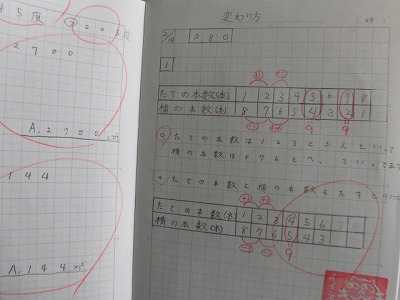 45度
⑦205度
2700
A.2700cm²
144
A.144m²
変わり方
P80
1
+1 +1
たての本数(本) 1 2 3 4 5 6 7 8
横の本数(本) 8 7 6 5 4 3 2 1
-1 -1 9 9
たての本数は123とふえていって
横の本数は876とへっていってます
たての本数と横の本数をたすと
+1 +1
たての本数(本) 1 2 3 4 5 6
横の本数(本) 8 7 6 5 4 3
-1 -1 9